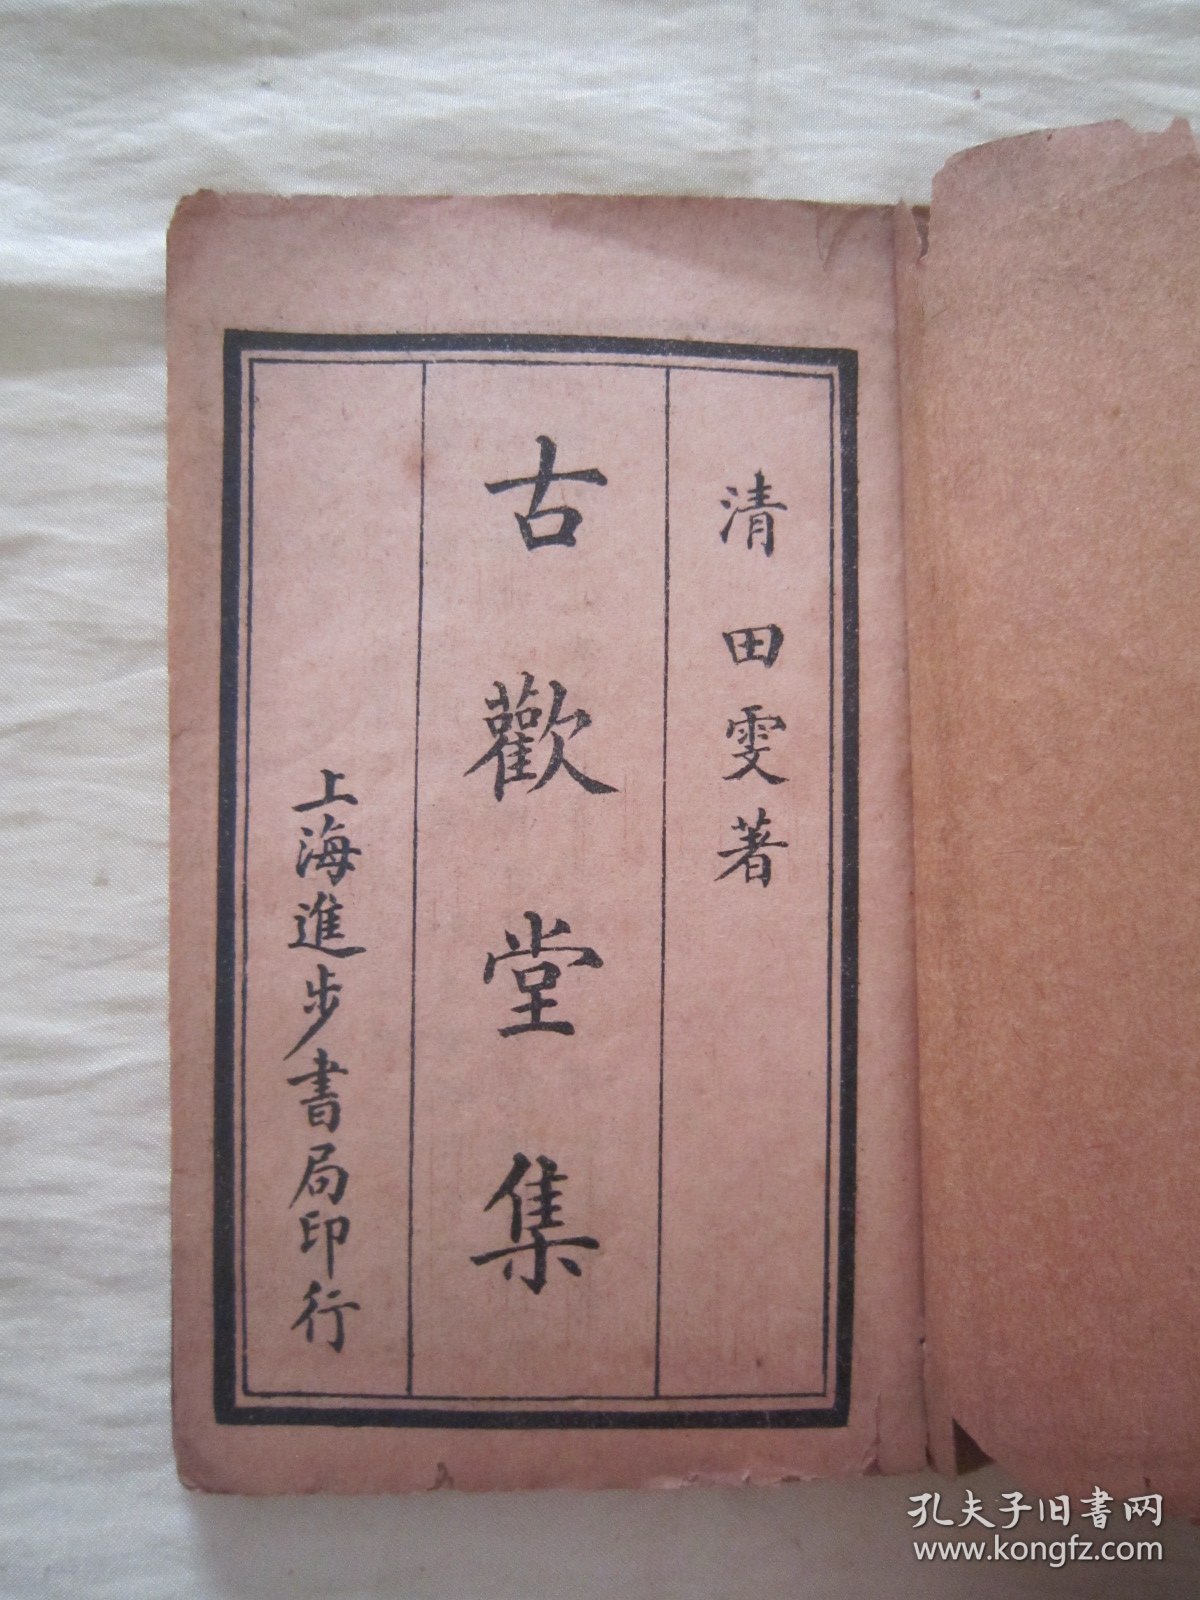 清田雯著
古歡堂集
上海進步書局印行
孔夫子旧书网
www.kongfz.com